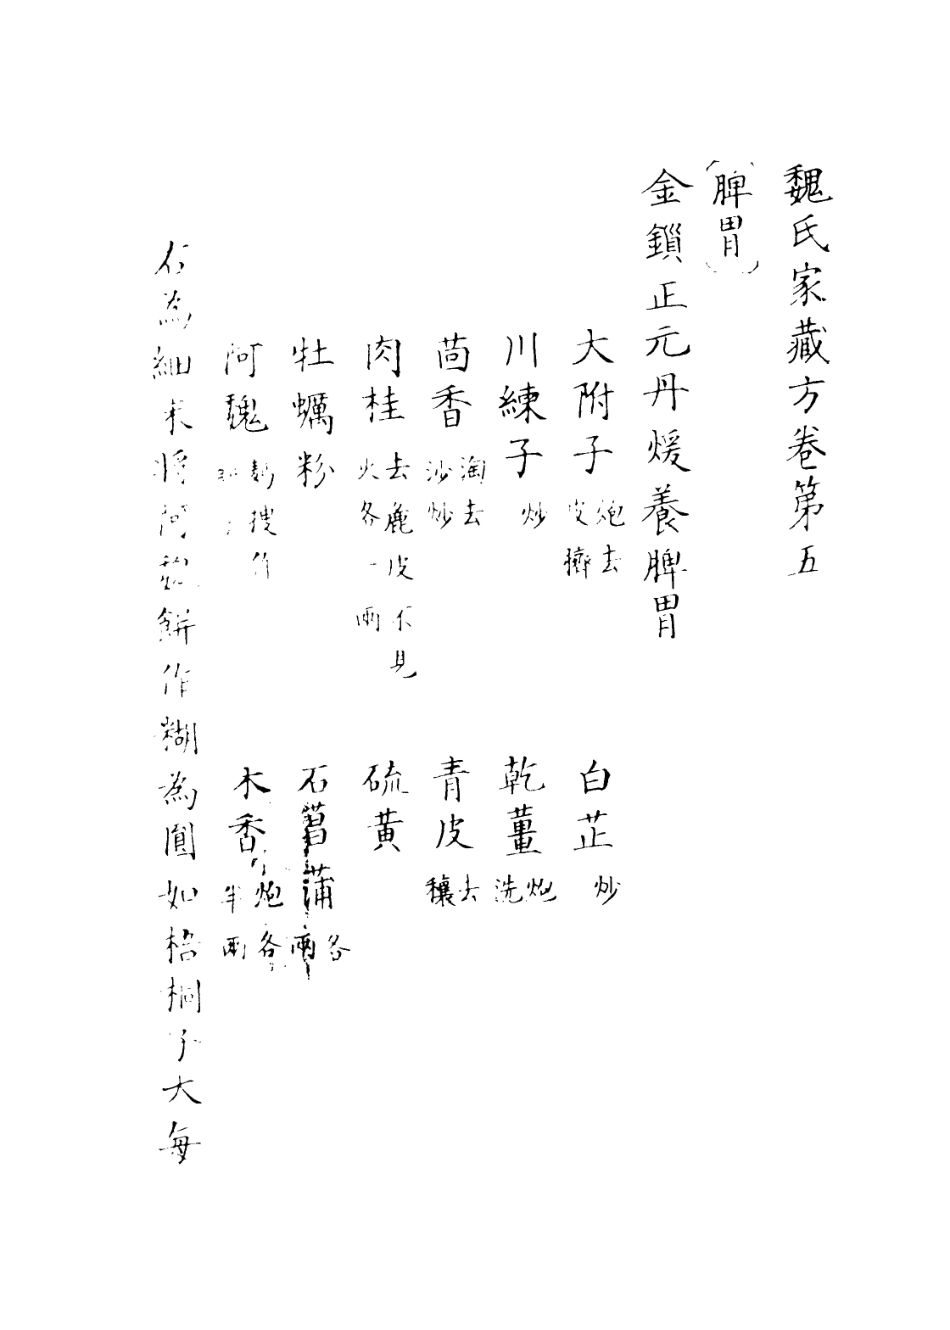 魏氏家藏方卷第五
〔脾胃〕
金鎖正元丹煖養脾胃
大附子 炮去皮臍 白芷 炒
川練子 炒 乾薑 炮洗
茴香 淘去沙炒 青皮 去穰
肉桂 去麁皮不見火各一兩 硫黃
牡蠣粉 石菖蒲 各兩
阿魏 麪搜作 木香 炮各半兩
右為細末將阿魏餅作糊為圓如梧桐子大每